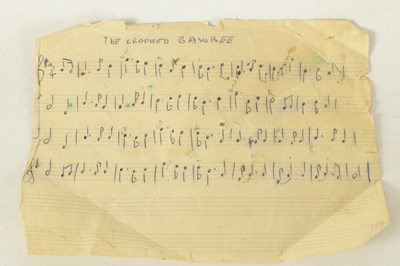 THE CROOKED BAWBEE